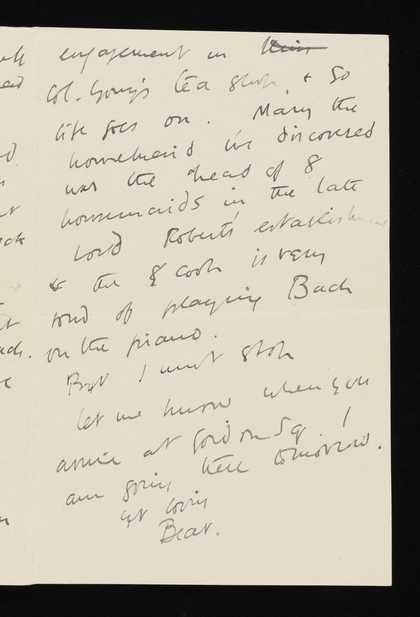 engagement in
Col. Young's tea shop, & so
life goes on. Mary the
housemaid I've discovered
was the head of 8
housemaids in the late
Lord Roberts' establishment
& the cook is very
fond of playing Bach
on the piano.
But I must stop
let me know when you
arrive at Gordon Sq. I
am going there tomorrow.
yr loving
Bear.